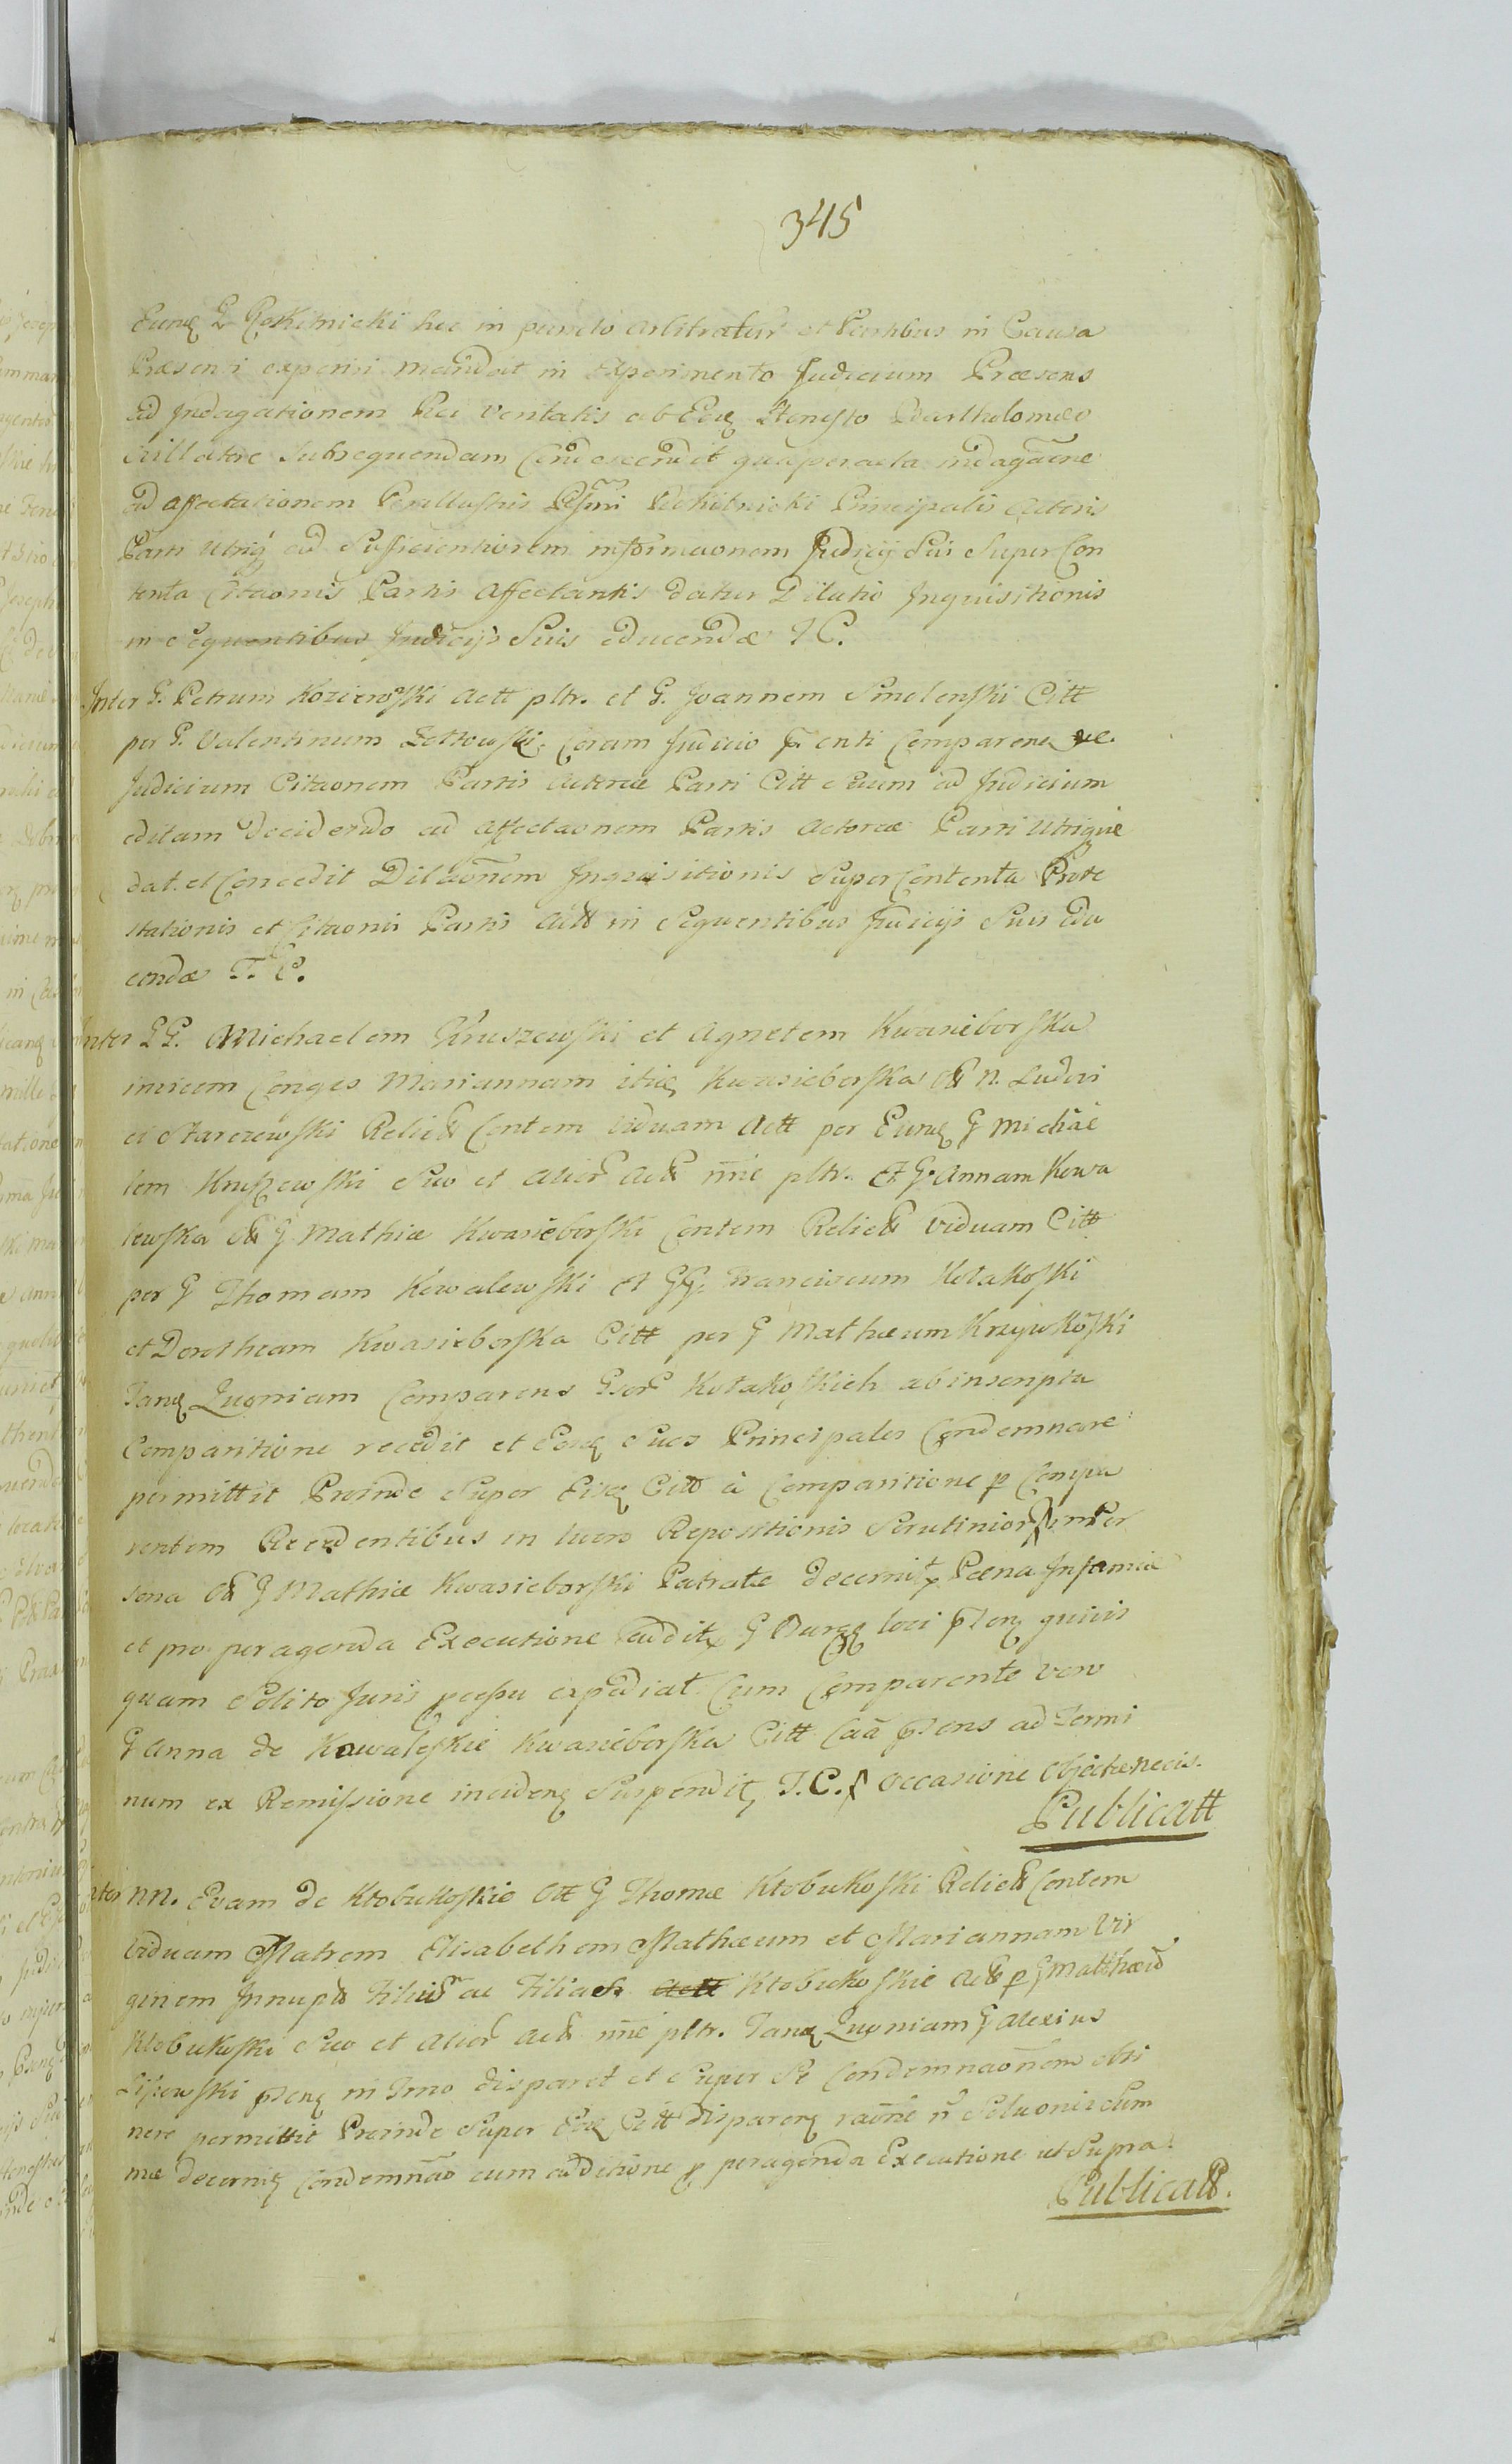 345
Eunq G Rokitnicki hec in puncto arbitratur et Partibus in Causa
Præsenti experiri mandat in experimento Judicium Præsens
ad Indagationem Rei veritatis ab Eoq Honesto Bartholomæo
subsequendam Condescendit qua peracta indagaōne
ad affectationem Perillustris Rokitnicki Principalis Actoris
Parti utriq ad Sufficientiorem informaonem Judicij Sui Super Con
tenta Citaonis Partis Affectantis datur Dilatio Inquisitionis
in Sequentibus Judicijs Suis educendæ T C.
Inter G. Petrum Kozierowski Actt pltr. et G. Joannem Smolenski Citt
per G. Valentinum Coram Judicio enti Comparen
Judicium Citaonem Partis Actoreæ Parti Citt eum ad Judicium
editam decidendo ad affectaonem Partis Actoreæ Parti Utrique
dat et Concedit Dilaonem Inquisitionis Super Contenta Prote
stationis et Citaonis Partis Actt in Sequentibus Judicijs Suis edu
cendæ T. C.
Inter GG. Michaelem Kruszewski et Agnetem Kwasieborska
invicem Conges Mariannam itiq Kwasieborska Ott N. Ludovi
ci Starczewski Relictt Contem Viduam Actt per Eunq G Michāe
lem Kruszewski Suo et alior Actt nne pltr. et G. Annam Kowa
lewska Ott G Mathiæ Kwasieborski Contem Relictt Viduam Citt
per G Thomam Kowalewski et GG. Franciscum Kołakoski
et Dorotheam Kwasieborska Citt per G Mathæum Krzywkoski
Tanq Quoniam Comparens Gsor Kołakoskich ab inscripta
Comparitione recedit et Eosq Suos Principales Condemnare
permittit Proinde Super Eisq Citt à Comparitione p Compa
rentem Recedentibus in lucro Repositionis Scrutinior in Per
sona Ott G Mathiæ Kwasieborski Patratæ decernit Pœna Infamiæ
et pro peragenda Executione addit G Burgq Loci pTenq quivis
quam Solito Juris pcessu expediat. Cum Comparente vero
G Anna de Kowaleskie Kwasieborska Citt Caā pTens ad Termi
num ex Remissione incidenq Suspendit, T. C. Occasione Objectæ necis.
Publicatt
Inter NN. Evam de Kłobukoskie Ott G Thomæ Kłobukoski Relictt Contem
Viduam Matrem Elisabethem Mathæum et Mariannam Vir
ginem Innuptt Filium ac Filias Kłobukoskie Actt p G Matthæū
Kłobukoski Suo et alior Actt nne pltr. Tanq Quoniam G Alexius
Lisiewski pTenq in Tmo disparet et Super Se Condemnaonem obti
nere permittit Proinde Super Eoq Citt disparenq raōne n Soluonis Sum
mæ decernit Condemnāo cum additione p peragenda Executione ut Supra.
Publicatt.